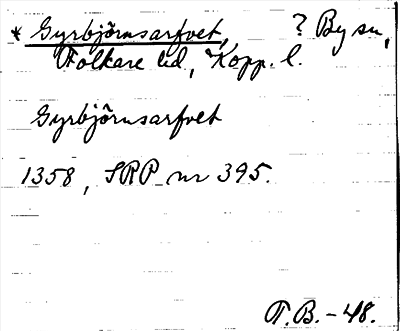 * Gyrbjörnsarfvet, ? By sn,
Folkare hd, Kopp. l.
Gyrbjörnsarfvet
1358, SRP nr 395.
T.B. -48.